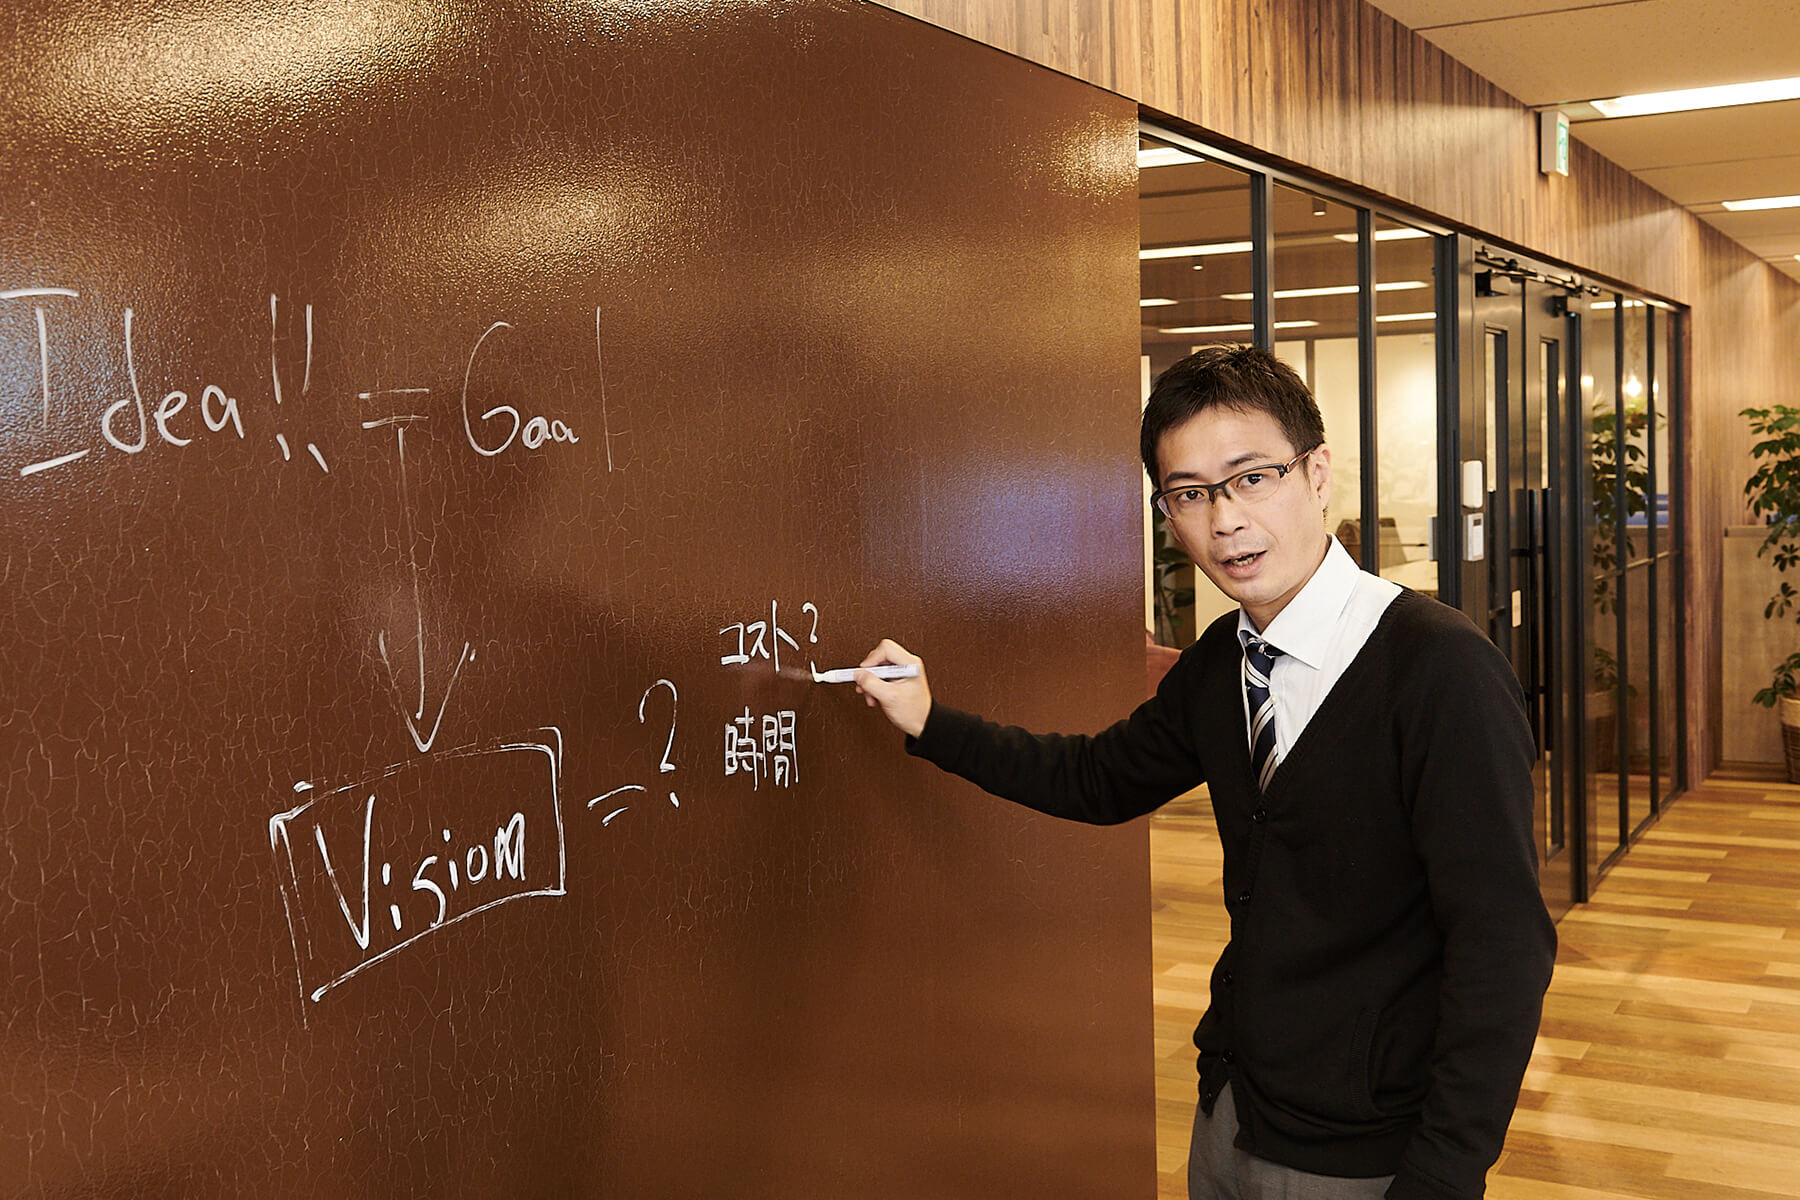 Idea!! = Goal
コスト?
時間
Vision = ?